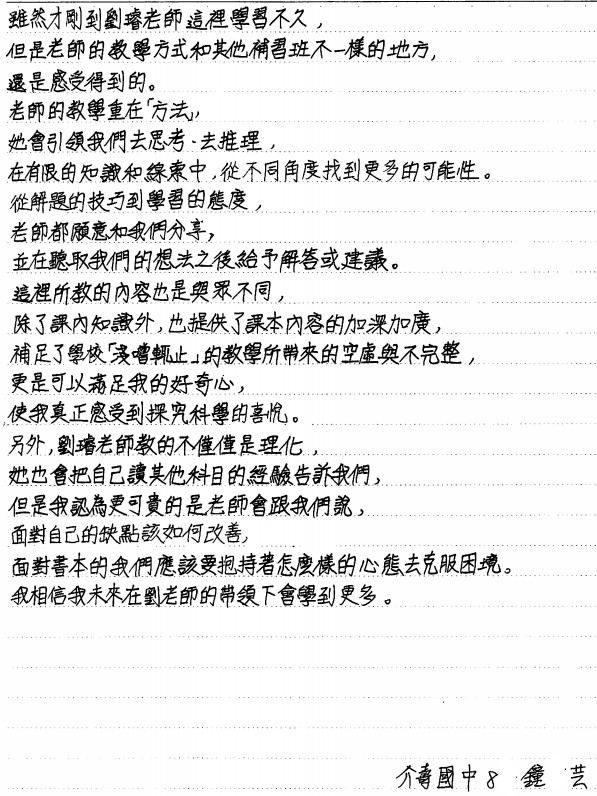 雖然才剛到劉璿老師這裡學習不久，
但是老師的教學方式和其他補習班不一樣的地方，
還是感受得到的。
老師的教學重在「方法」，
她會引領我們去思考、去推理，
在有限的知識和線索中，從不同角度找到更多的可能性。
從解題的技巧到學習的態度，
老師都願意和我們分享，
並在聽取我們的想法之後給予解答或建議。
這裡所教的內容也是與眾不同，
除了課內知識外，也提供了課本內容的加深加廣，
補足了學校「淺嚐輒止」的教學所帶來的空虛與不完整，
更是可以滿足我的好奇心，
使我真正感受到探究科學的喜悅。
另外，劉璿老師教的不僅僅是理化，
她也會把自己讀其他科目的經驗告訴我們，
但是我認為更可貴的是老師會跟我們說，
面對自己的缺點該如何改善，
面對書本的我們應該要抱持著怎麼樣的心態去克服困境。
我相信我未來在劉老師的帶領下會學到更多。
介壽國中 8 鐘 芸